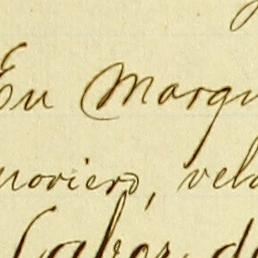 En Marqu
noviero, vela
Labor, de